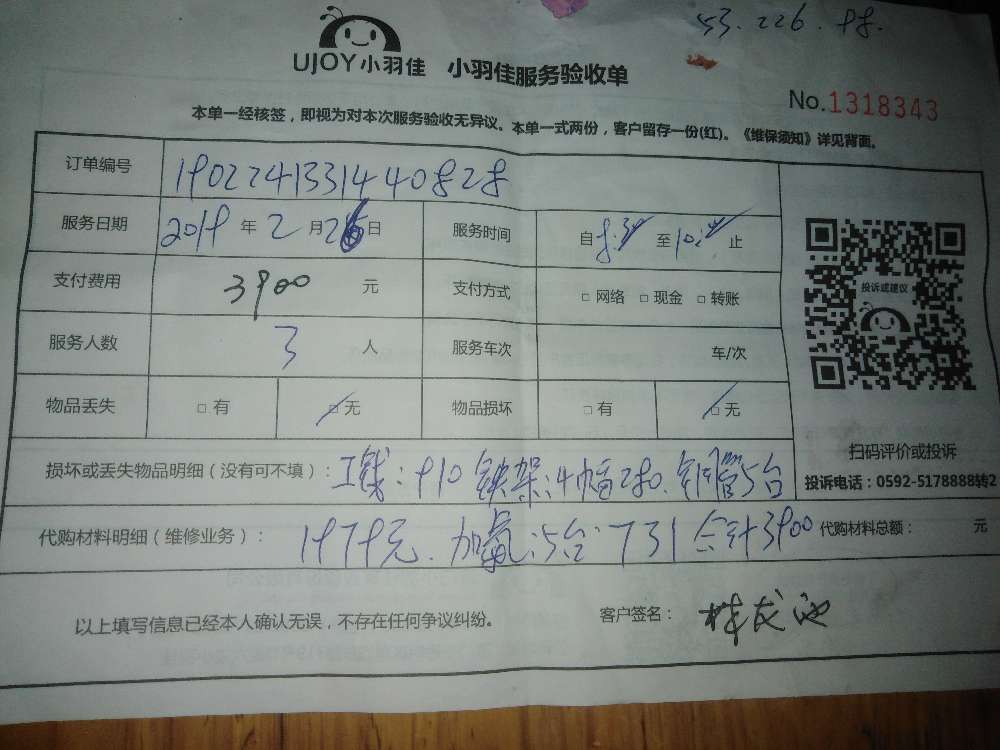 53.226.98.
UJOY小羽佳 小羽佳服务验收单
No.1318343
本单一经核签，即视为对本次服务验收无异议。本单一式两份，客户留存一份(红)。《维保须知》详见背面。
订单编号 190224133144082 8
服务日期 2019 年 2 月 26 日 服务时间 自 8:30 至 10: 止
支付费用 3900 元 支付方式 □ 网络 □ 现金 □ 转账
投诉或建议
服务人数 3 人 服务车次 车/次
物品丢失 □ 有 □ 无 物品损坏 □ 有 □ 无
扫码评价或投诉
损坏或丢失物品明细（没有可不填）: 工钱: 910 铁架:4幅280. 铜管5台
投诉电话：0592-5178888转2
代购材料明细（维修业务）: 1979元. 加氟:5台 731 合计3900 代购材料总额： 元
以上填写信息已经本人确认无误，不存在任何争议纠纷。 客户签名: